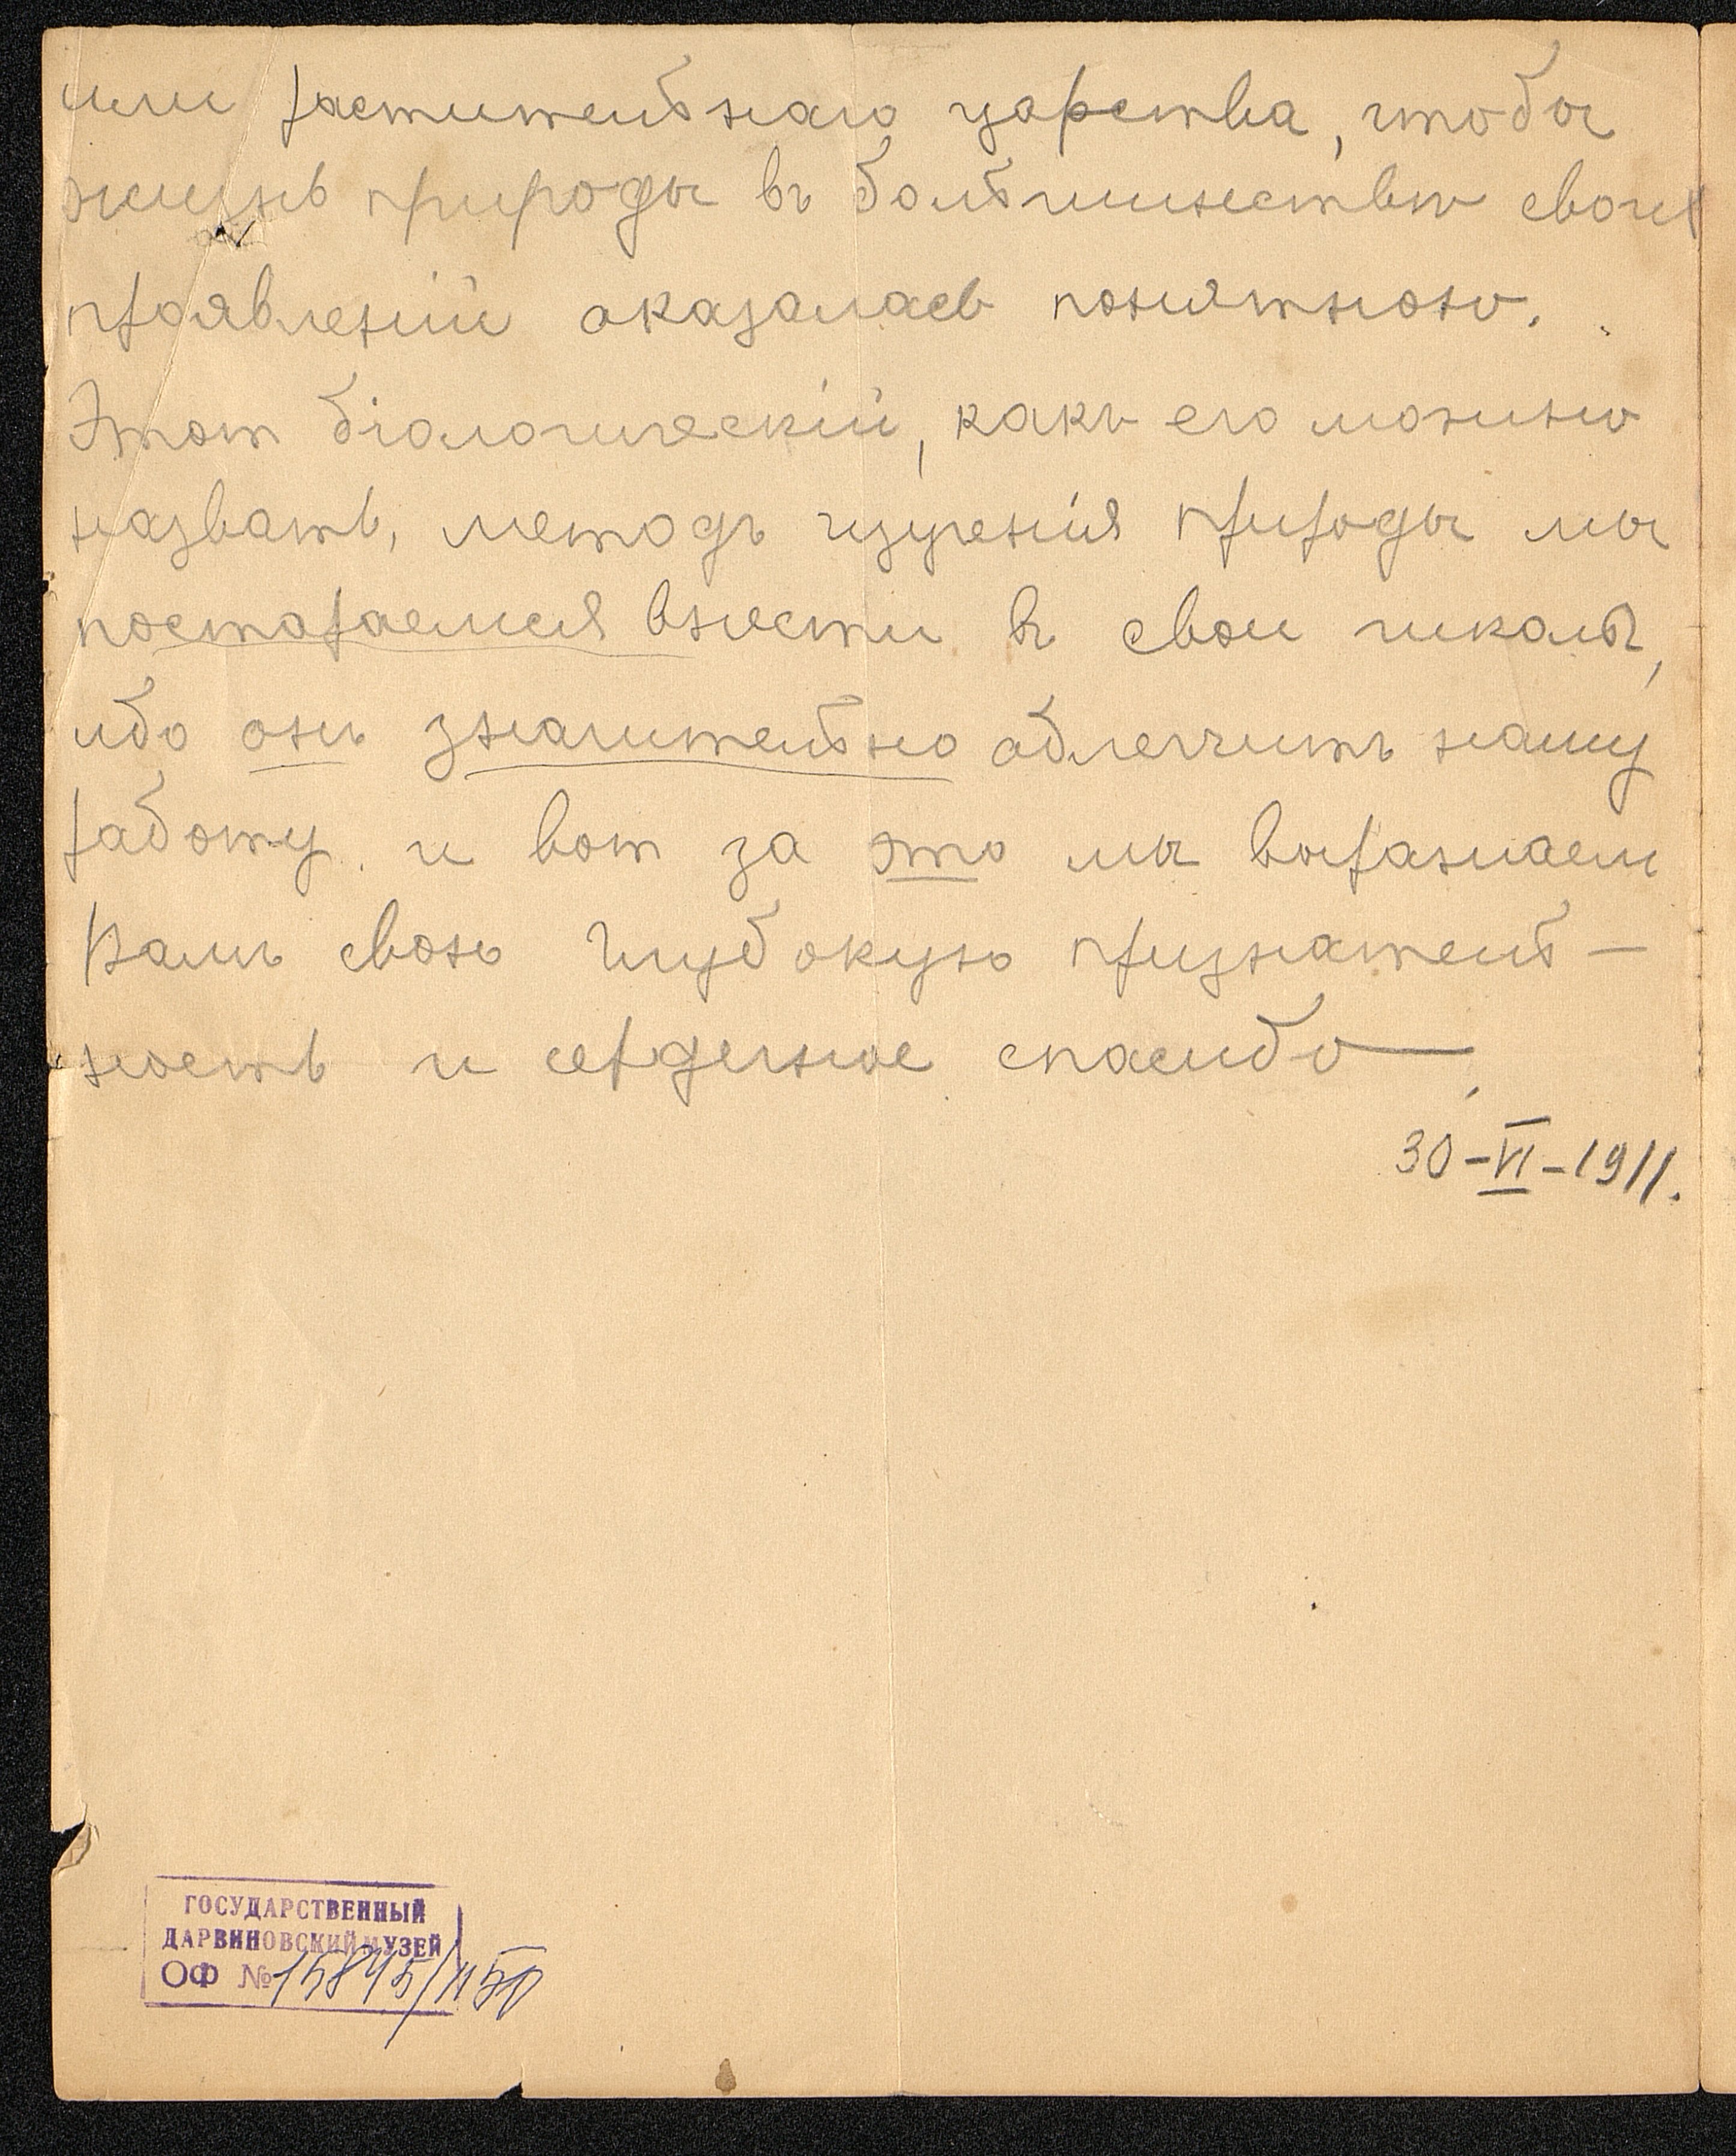 или растительнаго царства, чтобы
жизнь природы въ большинствѣ своих
проявленій оказалась понятною.
Этот біологическій, какъ его можно
назвать, методъ изученія природы мы
постараемся внести въ свои школы,
ибо онъ значительно облегчитъ нашу
работу, и вот за это мы выражаем
Вамъ свою глубокую признатель-
ность и сердечное спасибо.
30-VI-1911.
ГОСУДАРСТВЕННЫЙ
ДАРВИНОВСКИЙ МУЗЕЙ
ОФ № 15845/1150